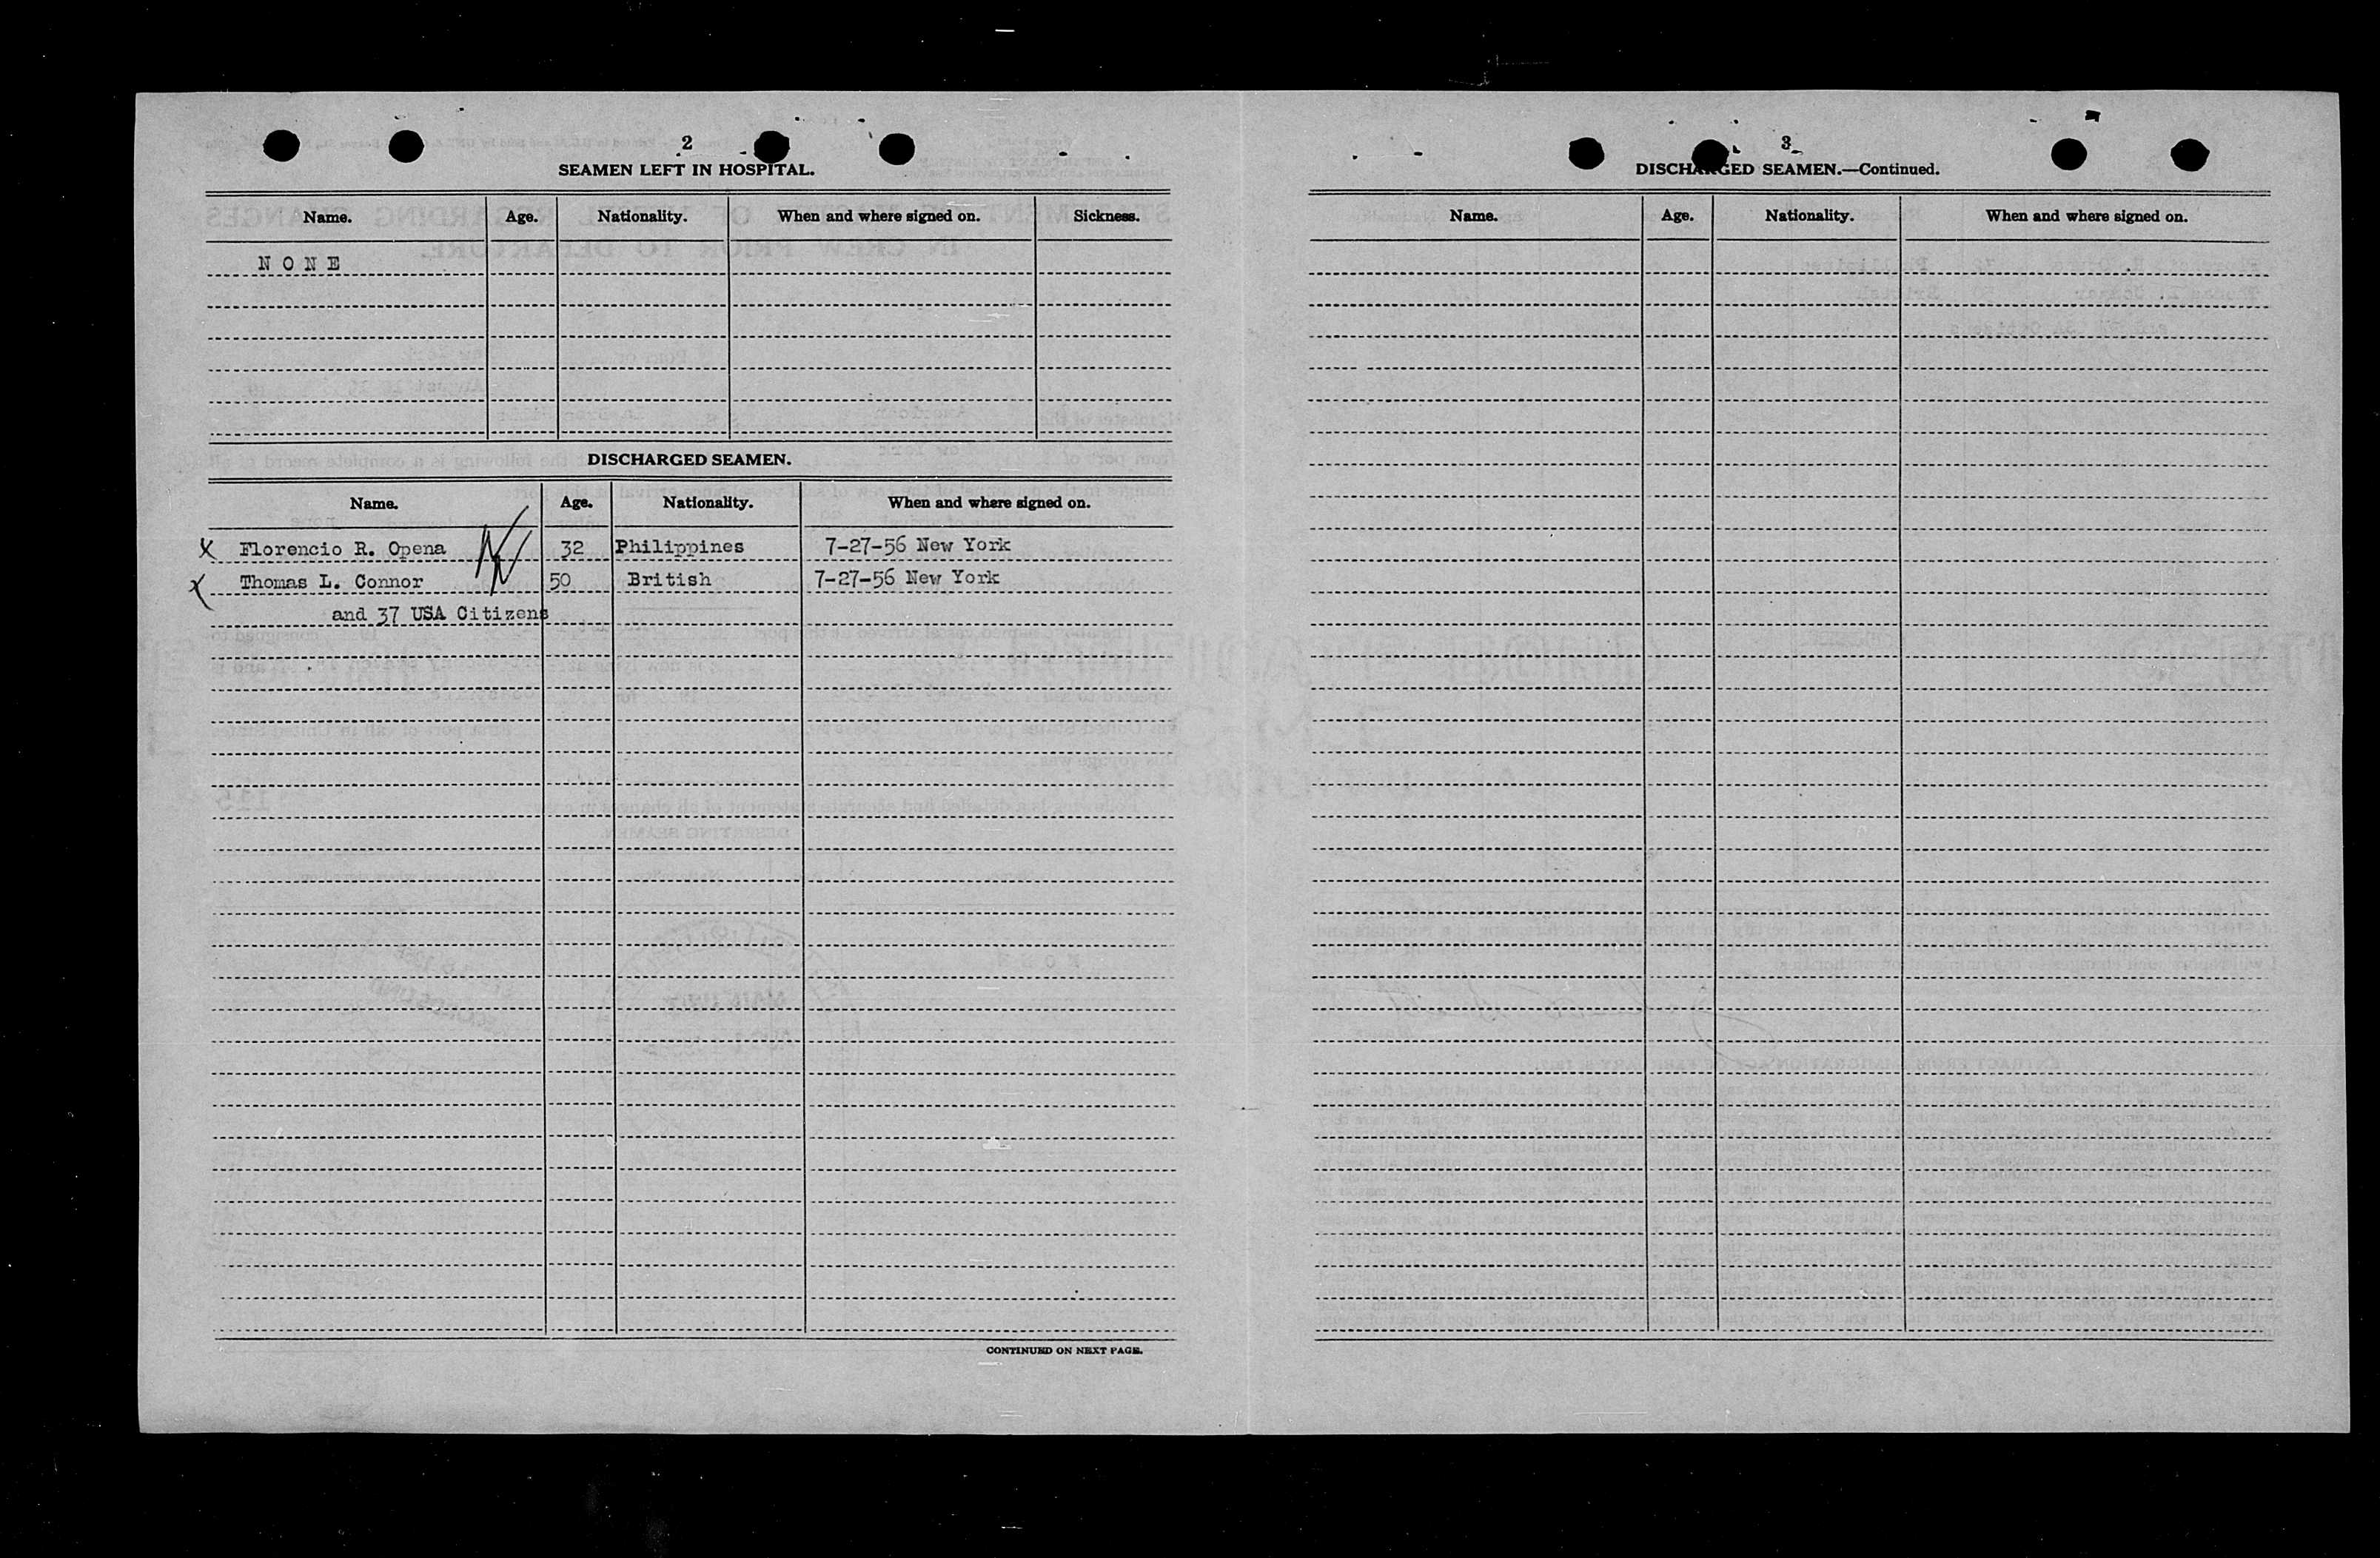 2
SEAMEN LEFT IN HOSPITAL.
Name. Age. Nationality. When and where signed on. Sickness.
N O N E
DISCHARGED SEAMEN.
Name. Age. Nationality. When and where signed on.
X Florencio R. Opena 32 Philippines 7-27-56 New York
X Thomas L. Connor 50 British 7-27-56 New York
and 37 USA Citizens
CONTINUED ON NEXT PAGE.
3
DISCHARGED SEAMEN.—Continued.
Name. Age. Nationality. When and where signed on.